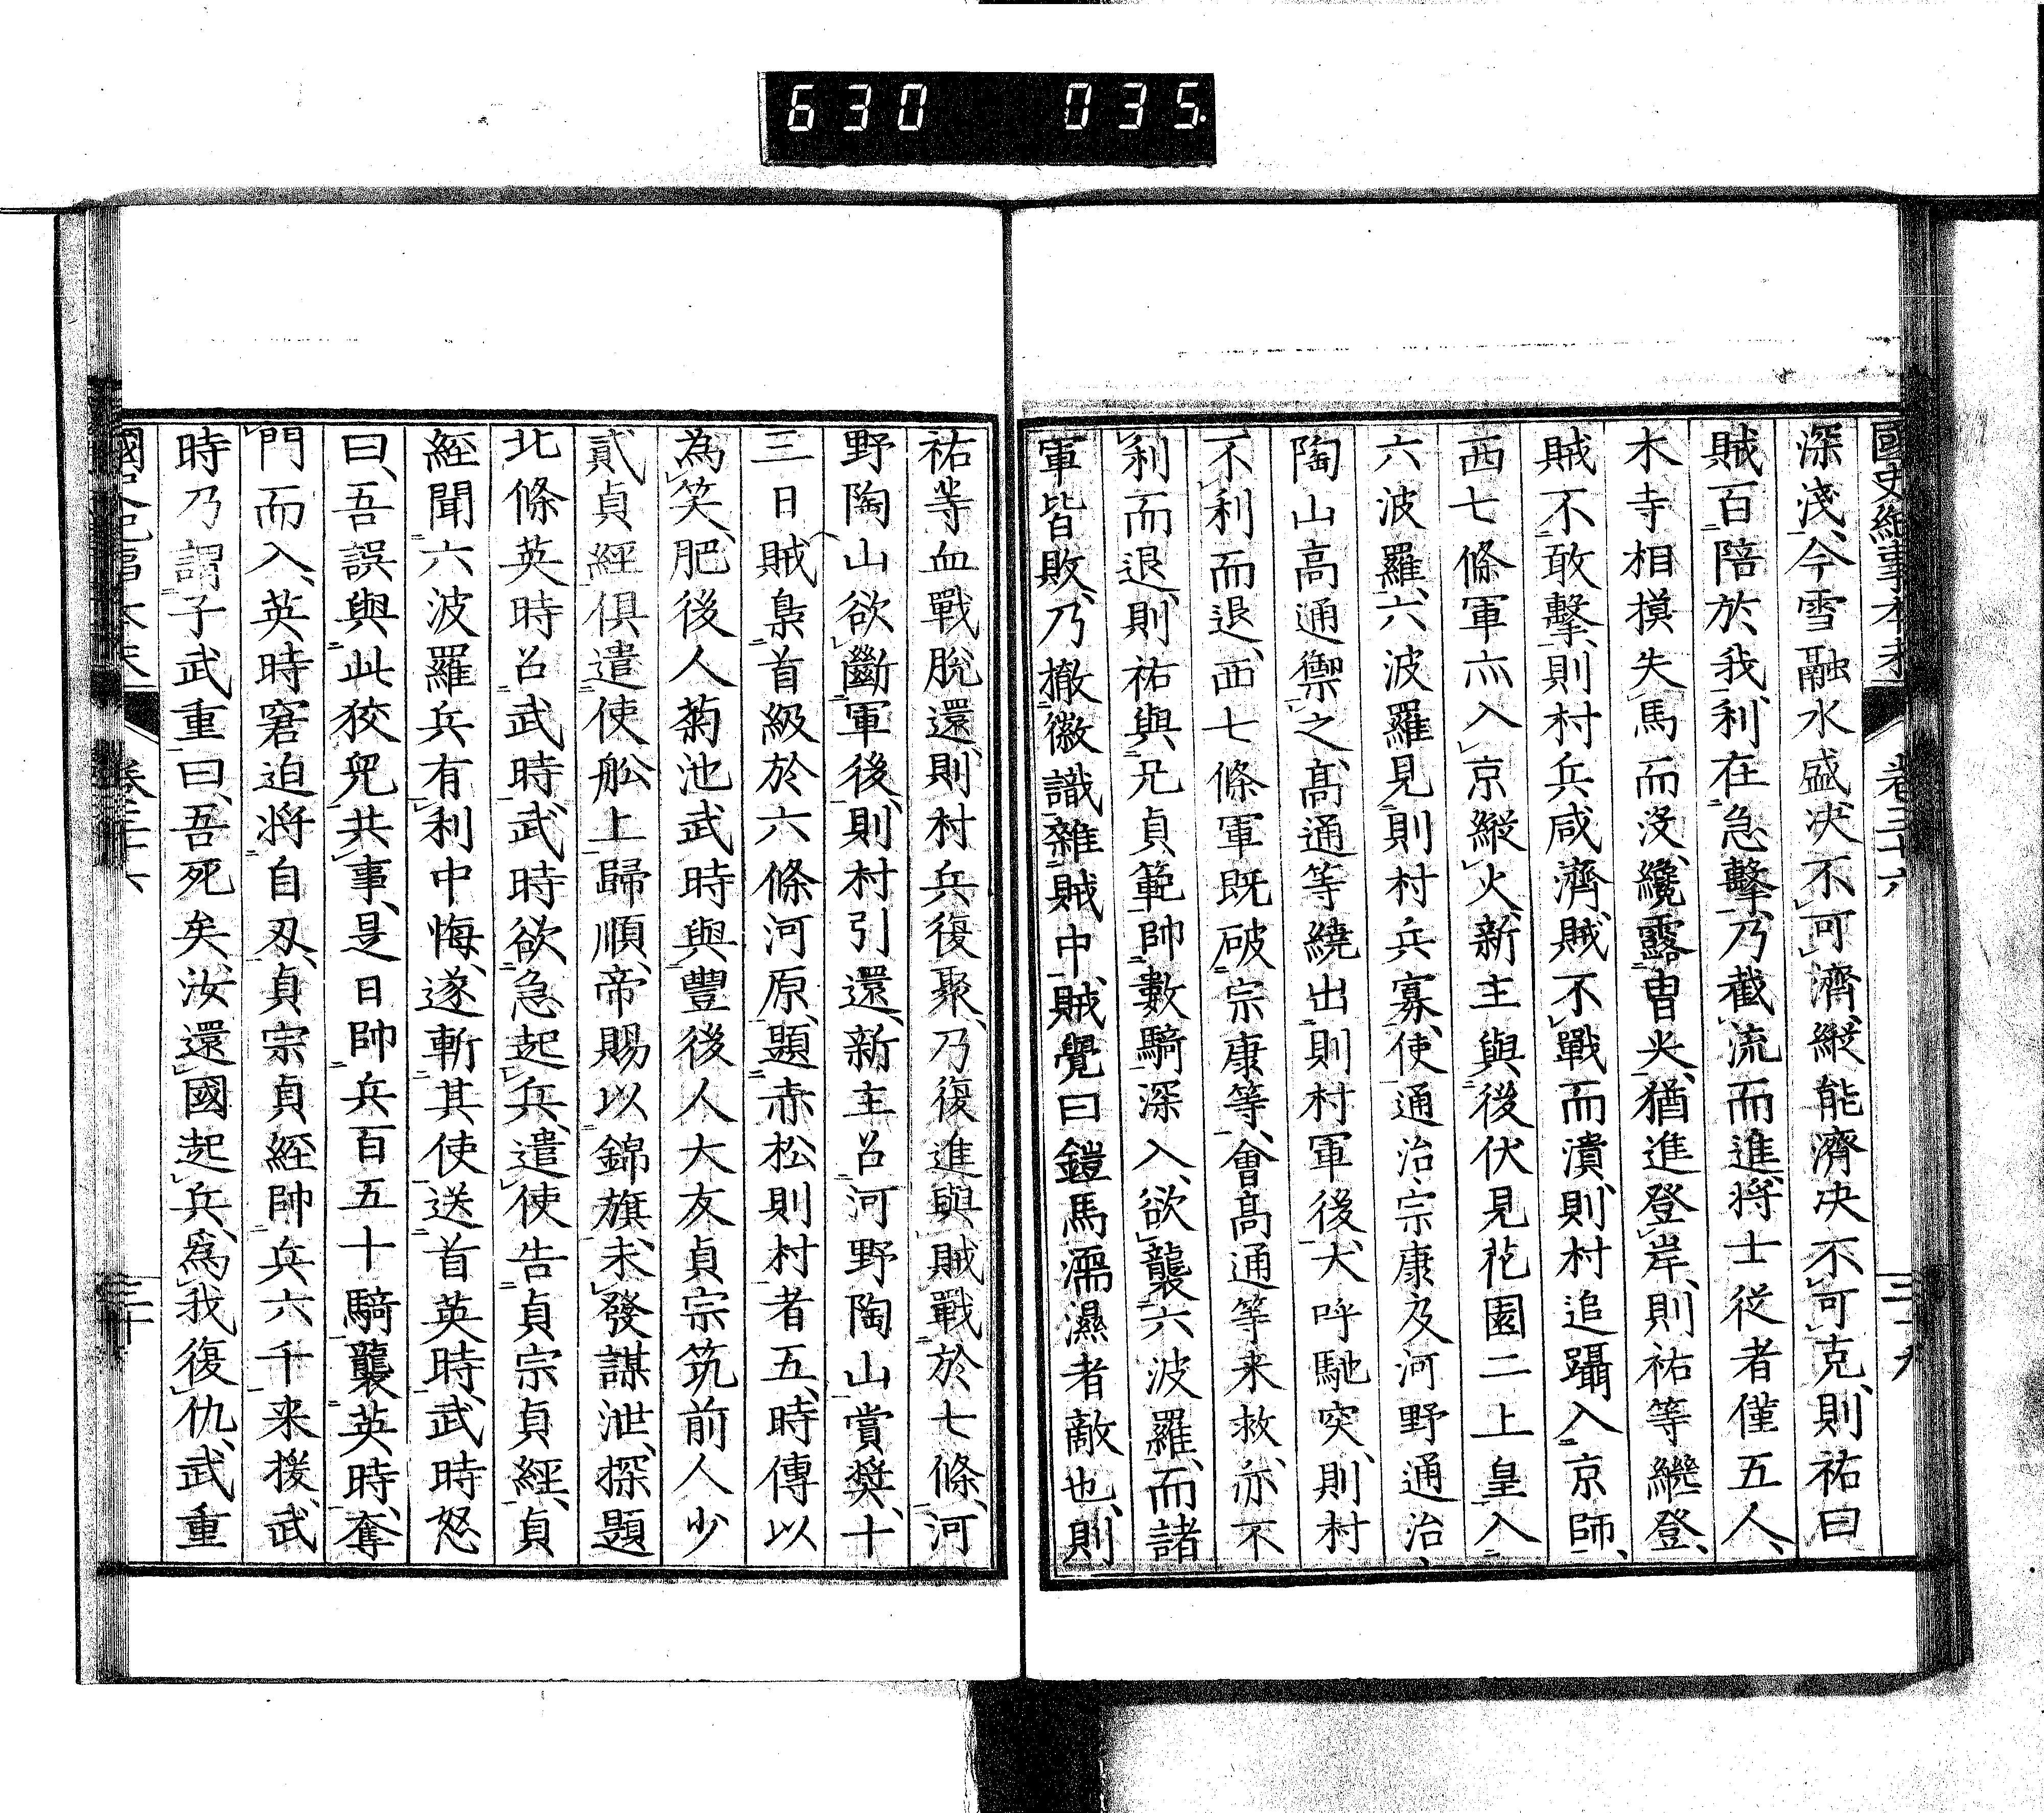 630 035.
國史紀事本末 卷三十六
深淺、今雪融水盛、决不可濟、縱能濟决不可克、則祐曰
賊百陪於我、利在急擊、乃截流而進、將士從者僅五人、
木寺相模失馬而没、纔露冑尖、猶進登岸、則祐等繼登、
賊不敢擊、則村兵咸濟、賊不戰而潰、則村追躡入京師、
西七條軍亦入京縱火、新主與後伏見花園二上皇入
六波羅、六波羅見則村兵寡、使通治、宗康及河野通治、
陶山高通禦之、高通等繞出則村軍後、大呼馳突、則村
不利而退、西七條軍既破宗康等、會高通等来救、亦不
利而退、則祐與兄貞範帥數騎深入、欲襲六波羅、而諸
軍皆敗、乃撤徽識雜賊中、賊覺曰鎧馬濡濕者敵也、則
祐等血戰脫還、則村兵復聚、乃復進與賊戰於七條、河
野陶山欲斷軍後、則村引還、新主召河野陶山賞奬、十
三日賊梟首級於六條河原、題赤松則村者五、時傳以
為笑、肥後人菊池武時與豐後人大友貞宗筑前人少
貳貞經俱遣使舩上歸順、帝賜以錦旗、未發謀泄、探題
北條英時召武時、武時欲急起兵、遣使告貞宗貞經、貞
經聞六波羅兵有利中悔、遂斬其使、送首英時、武時怒
曰、吾誤與此狡兒共事、是日帥兵百五十騎襲英時、奪
門而入、英時窘迫將自刃、貞宗貞經帥兵六千来援、武
時乃謂子武重曰、吾死矣、汝還國起兵、爲我復仇、武重